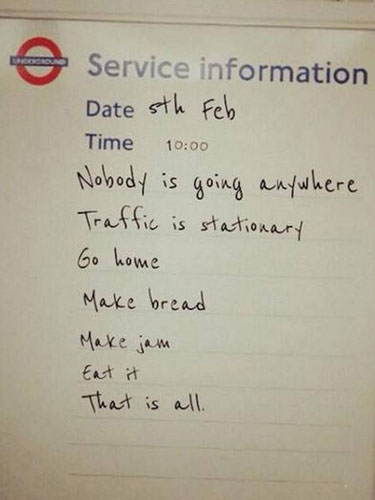 UNDERGROUND
Service information
Date 5th Feb
Time 10:00
Nobody is going anywhere
Traffic is stationary
Go home
Make bread
Make jam
Eat it
That is all.